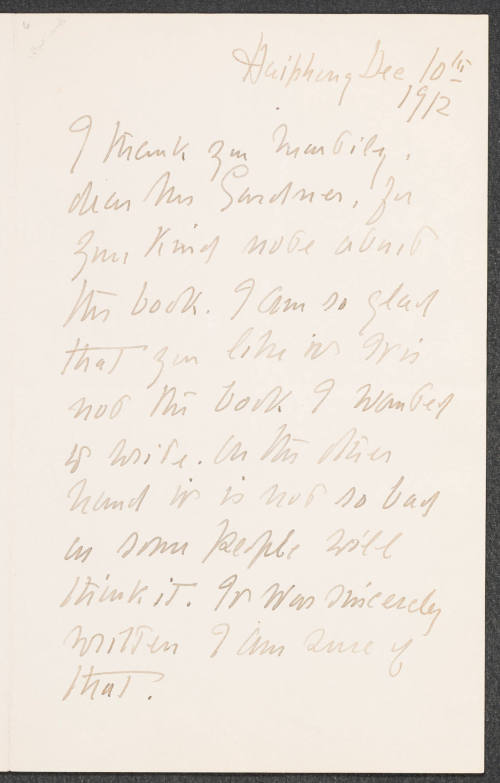 Haiphong Dec 10th
1912
I thank you heartily,
dear Mrs Gardner, for
your kind note about
the book. I am so glad
that you like it. It is
not the book I wanted
to write. On the other
hand it is not so bad
as some people will
think it. It was sincerely
written I am sure of
that.